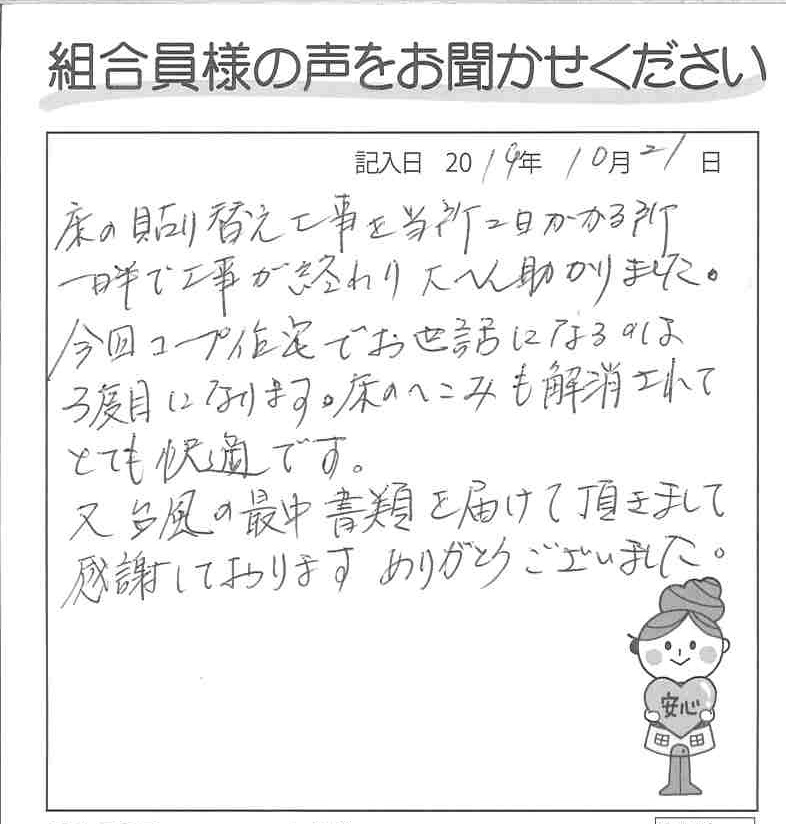 組合員様の声をお聞かせください
記入日 2019年 10月21日
床の貼り替え工事を当所2日かかる所
一日半で工事が終わり大へん助かりました。
今回コープ住宅でお世話になるのは
3度目になります。床のへこみも解消されて
とても快適です。
又台風の最中書類を届けて頂きまして
感謝しておりますありがとうございました。
安心